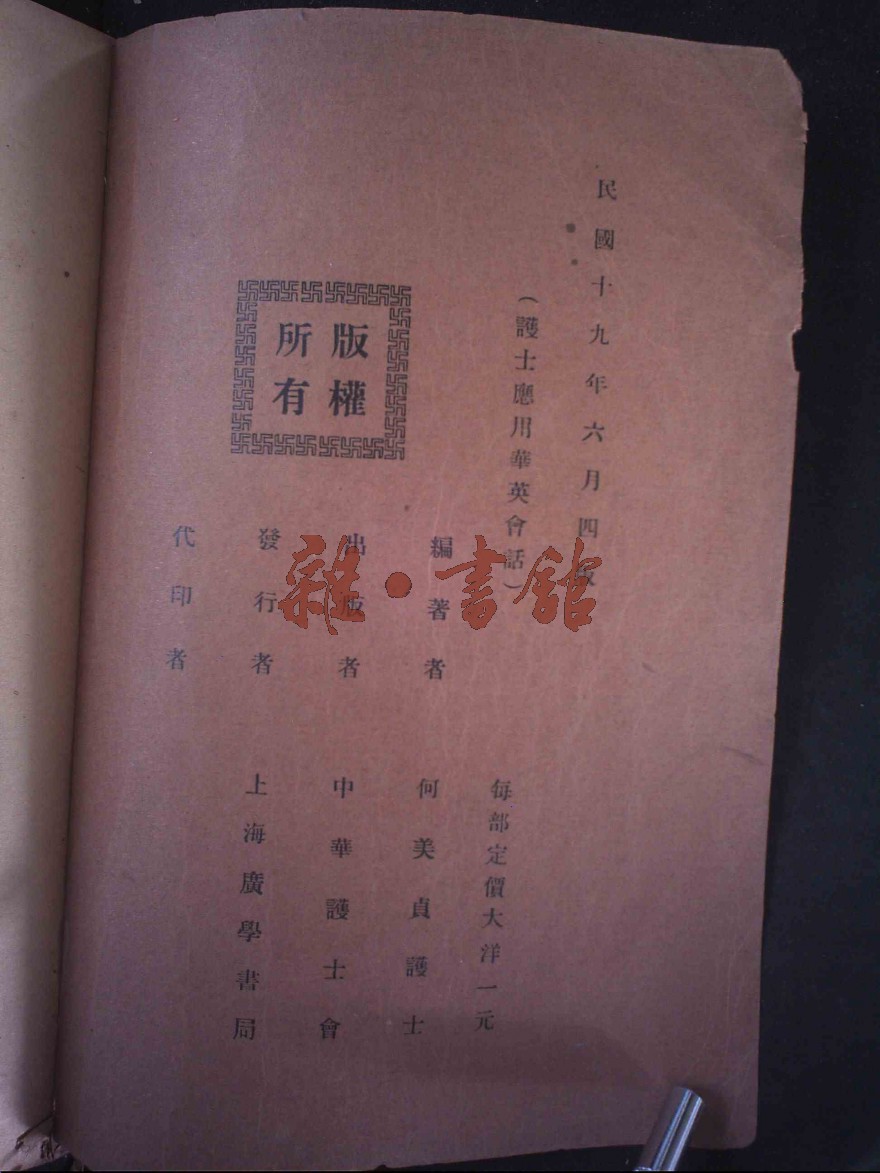 民國十九年六月四版
(護士應用華英會話)
每部定價大洋一元
編著者 何美貞護士
出版者 中華護士會
發行者 上海廣學書局
代印者
版權
所有
雜·書館